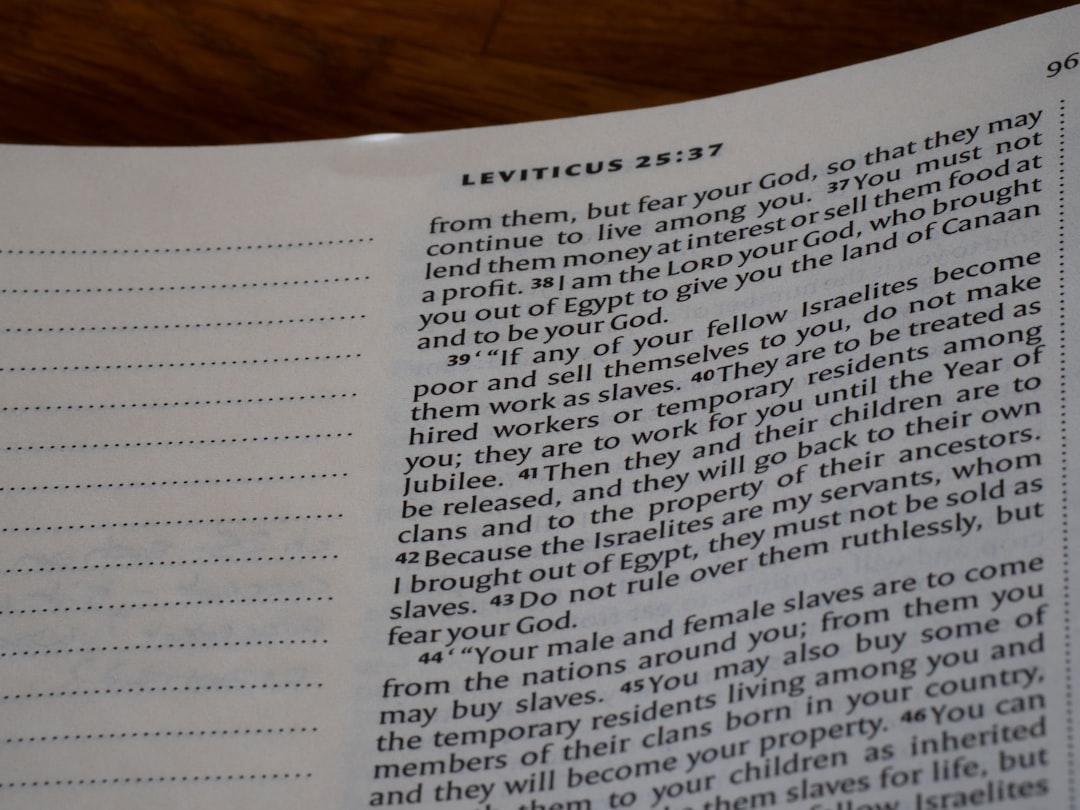 96
LEVITICUS 25:37
from them, but fear your God, so that they may
continue to live among you. 37You must not
lend them money at interest or sell them food at
a profit. 38I am the LORD your God, who brought
you out of Egypt to give you the land of Canaan
and to be your God.
39‘“If any of your fellow Israelites become
poor and sell themselves to you, do not make
them work as slaves. 40They are to be treated as
hired workers or temporary residents among
you; they are to work for you until the Year of
Jubilee. 41Then they and their children are to
be released, and they will go back to their own
clans and to the property of their ancestors.
42Because the Israelites are my servants, whom
I brought out of Egypt, they must not be sold as
slaves. 43Do not rule over them ruthlessly, but
fear your God.
44‘“Your male and female slaves are to come
from the nations around you; from them you
may buy slaves. 45You may also buy some of
the temporary residents living among you and
members of their clans born in your country,
and they will become your property. 46You can
them to your children as inherited
them slaves for life, but
Israelites